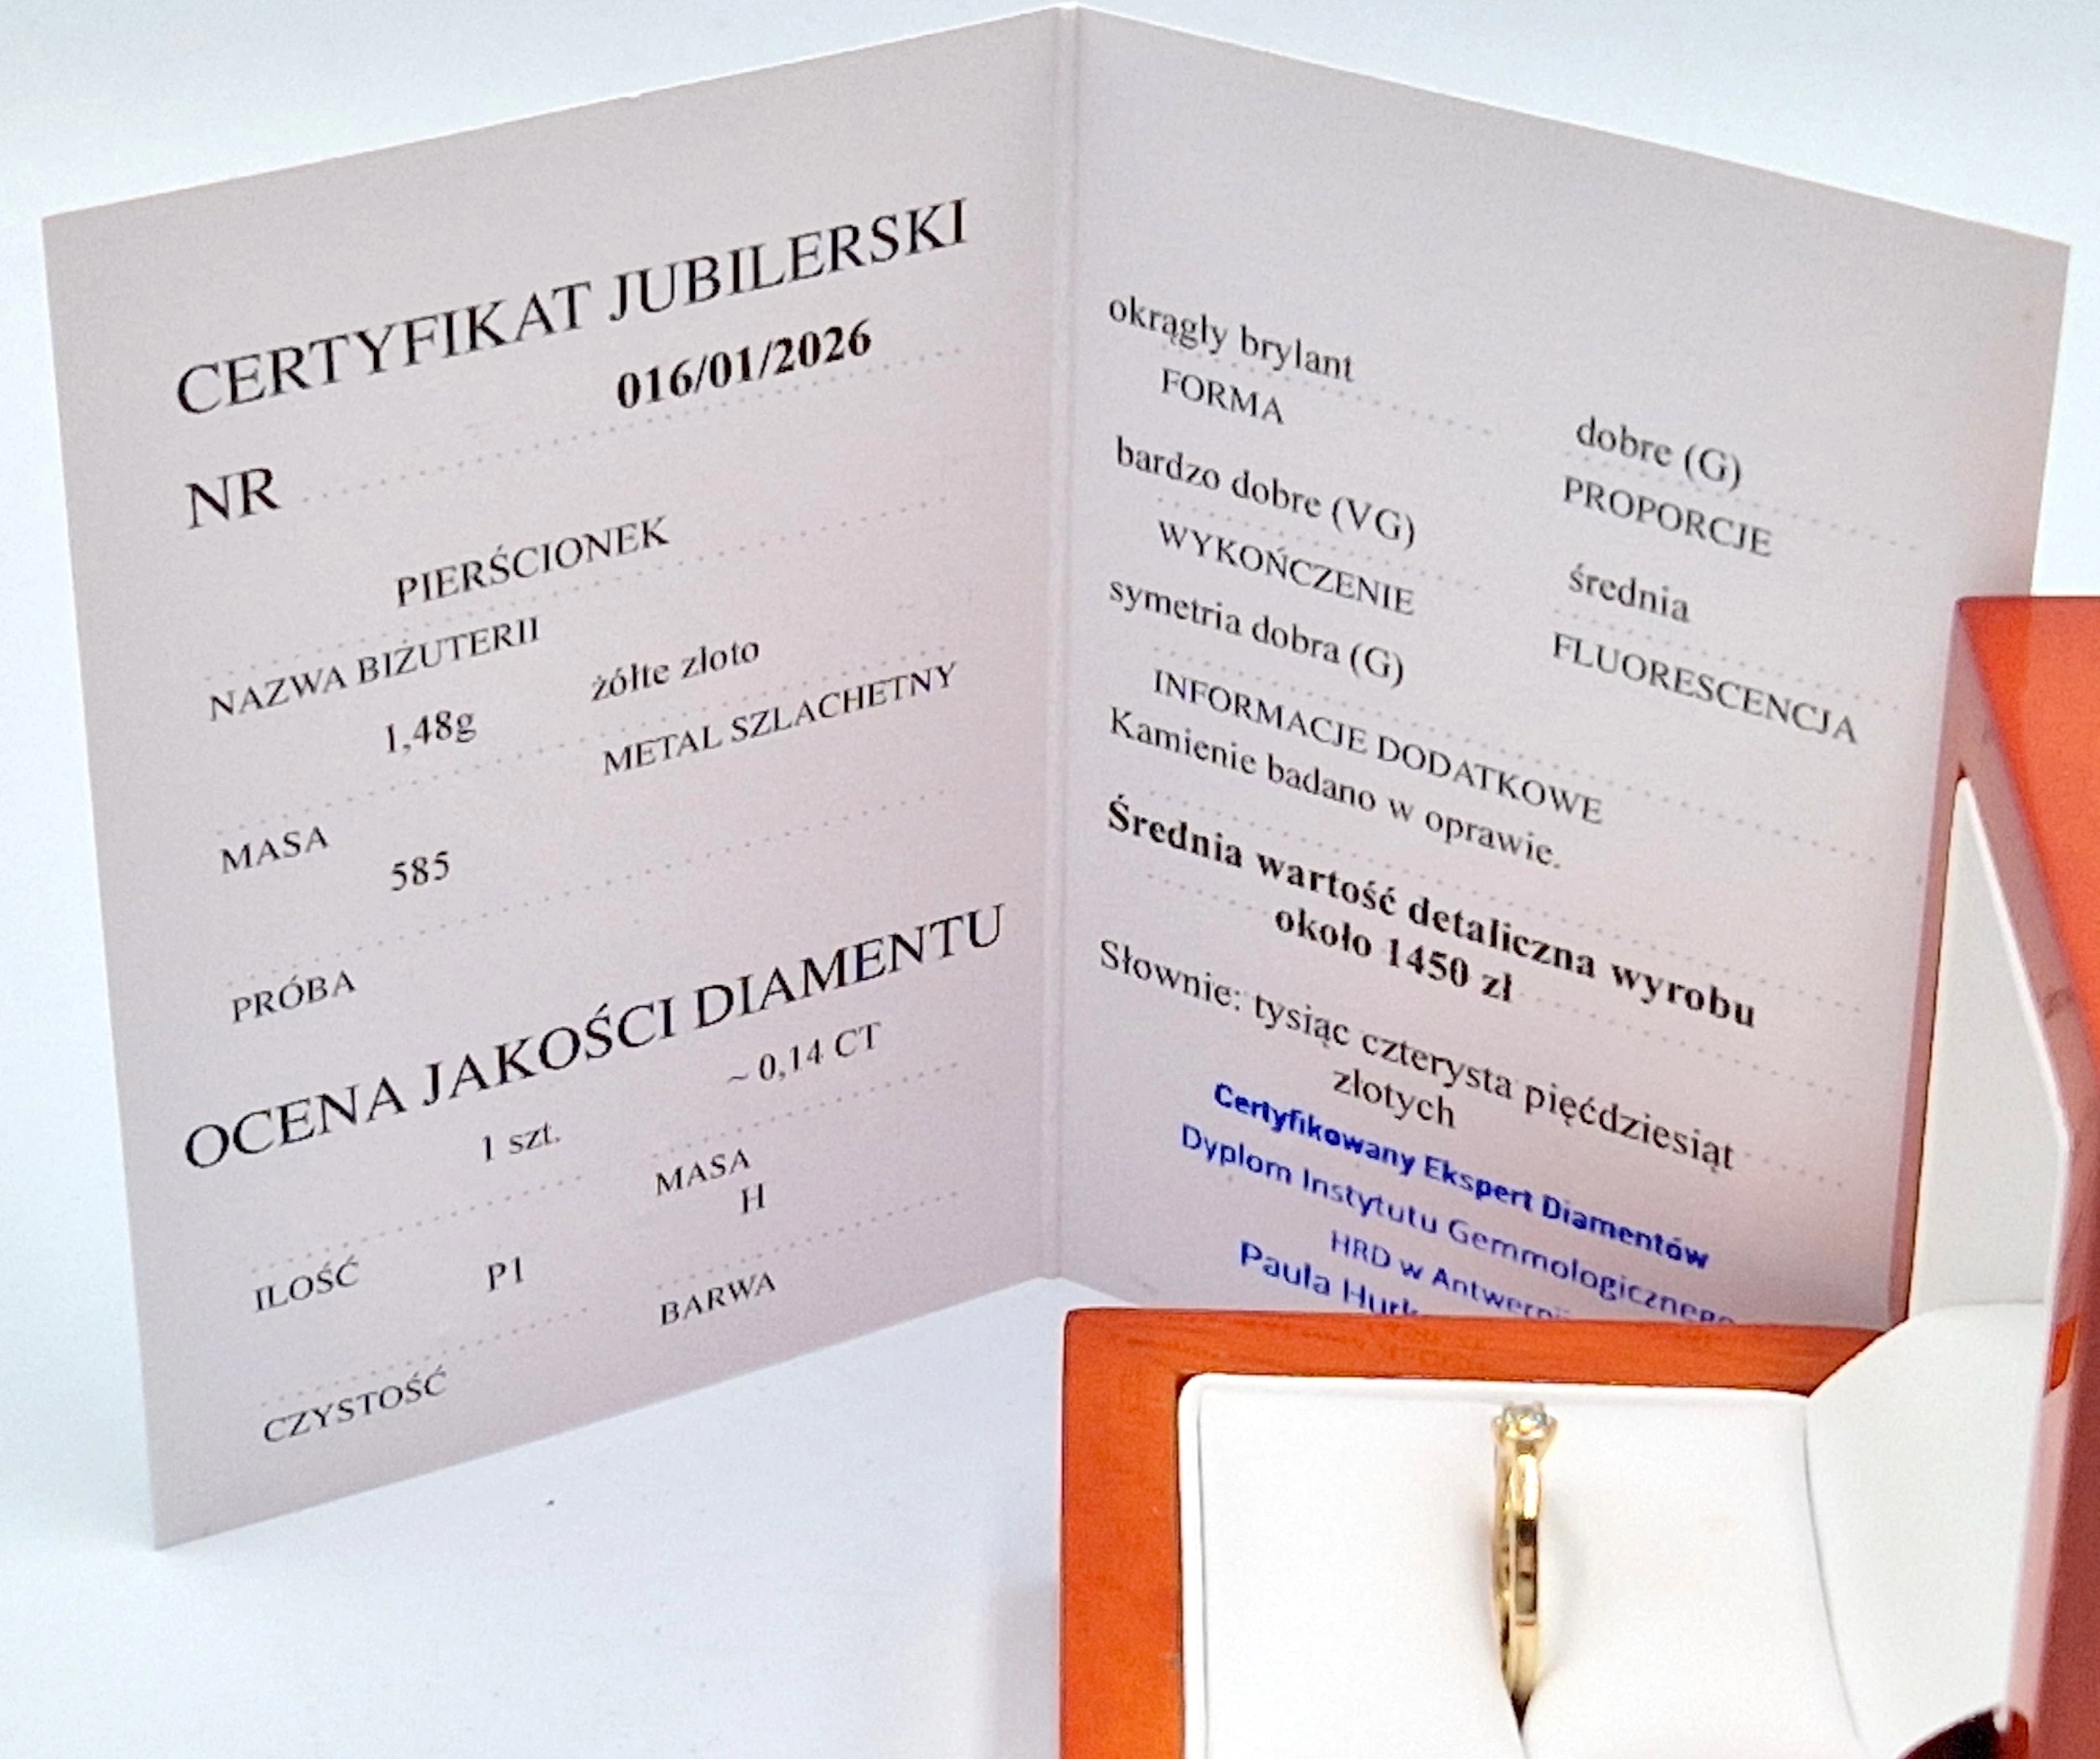 CERTYFIKAT JUBILERSKI
016/01/2026
NR
PIERŚCIONEK
NAZWA BIŻUTERII
1,48g żółte złoto
MASA METAL SZLACHETNY
585
PRÓBA
OCENA JAKOŚCI DIAMENTU
1 szt. ~ 0,14 CT
ILOŚĆ MASA
P1 H
CZYSTOŚĆ BARWA
okrągły brylant dobre (G)
FORMA PROPORCJE
bardzo dobre (VG) średnia
WYKOŃCZENIE FLUORESCENCJA
symetria dobra (G)
INFORMACJE DODATKOWE
Kamienie badano w oprawie.
Średnia wartość detaliczna wyrobu
około 1450 zł
Słownie: tysiąc czterysta pięćdziesiąt
złotych
Certyfikowany Ekspert Diamentów
Dyplom Instytutu Gemmologicznego
HRD w Antwerpii
Paula